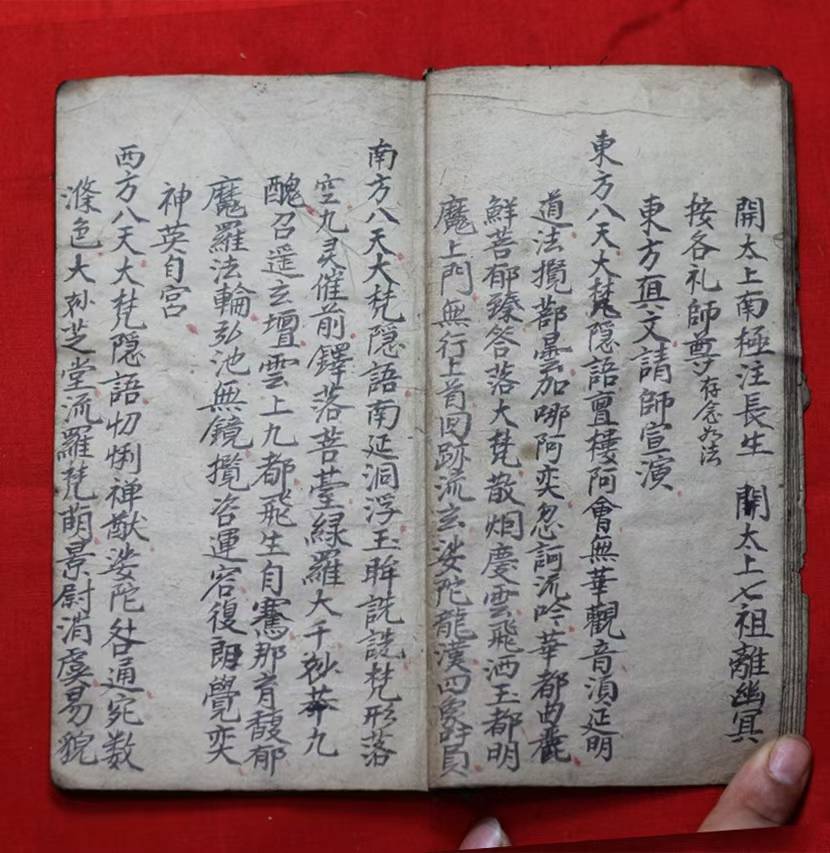 開太上南極注長生　開太上七祖離幽冥
按各礼師尊少存念如法
東方真文請師宣演
東方八天大梵隱語亶樓阿會無華觀音湏延明
道法攬菩曇加哪阿奕忽訶流吟華都曲麗
鮮菩郁臻答落大梵散烟慶雲飛洒玉都明
魔上門無行上首回跡流玄娑陀龍漢四象吁員
南方八天大梵隱語南延洞浮玉眸詵詵梵形落
空九灵催前鐸落菩臺緑羅大千莽九
醜召遥玄壇雲上九都飛生自騫那育馥郁
魔羅法輪弘池無鏡攬咨運容復朗覺奕
神英自宮
西方八天大梵隱語刃悧禅猷娑陀咎通宛数
滌色大芝堂流羅梵萌景尉消虞易貌